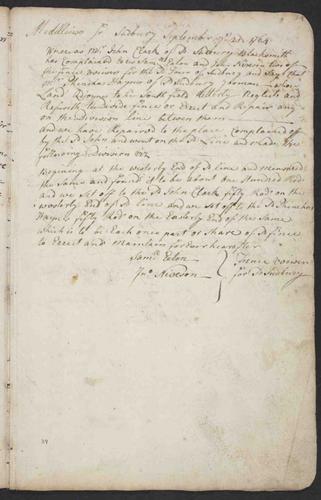 Middlesex Ss Sudbury September ye 21st 1764
Whereas Mr John Clark of Sd Sudbury Blacksmith
has Complained to us Saml Eaton and Jno Noyes
fence viewers for the Sd Town of Sudbury and Says that
of Sd Sudbury yeoman whose
Land Joyns to his South field Utterly Neglects and
Refuseth to divide fence or Erect and Repair any
on the Division Line between them
And we have Repaired to the place Complained off
by the Sd John and went on the Sd Line and made the
following Division viz
Begining at the westerly End of Sd Line and measured
the Same and found it to be about one Hundred Rods
and we Set off to the Sd John Clark fifty Rods on the
westerly End of Sd Line and we Set off to the Sd
fifty Rods on the Easterly End of the Same
which is to be Each ones part or Share of Sd fence
to Erect and Maintain for Ever hereafter
Saml Eaton
Fence viewers
for Sd Sudbury